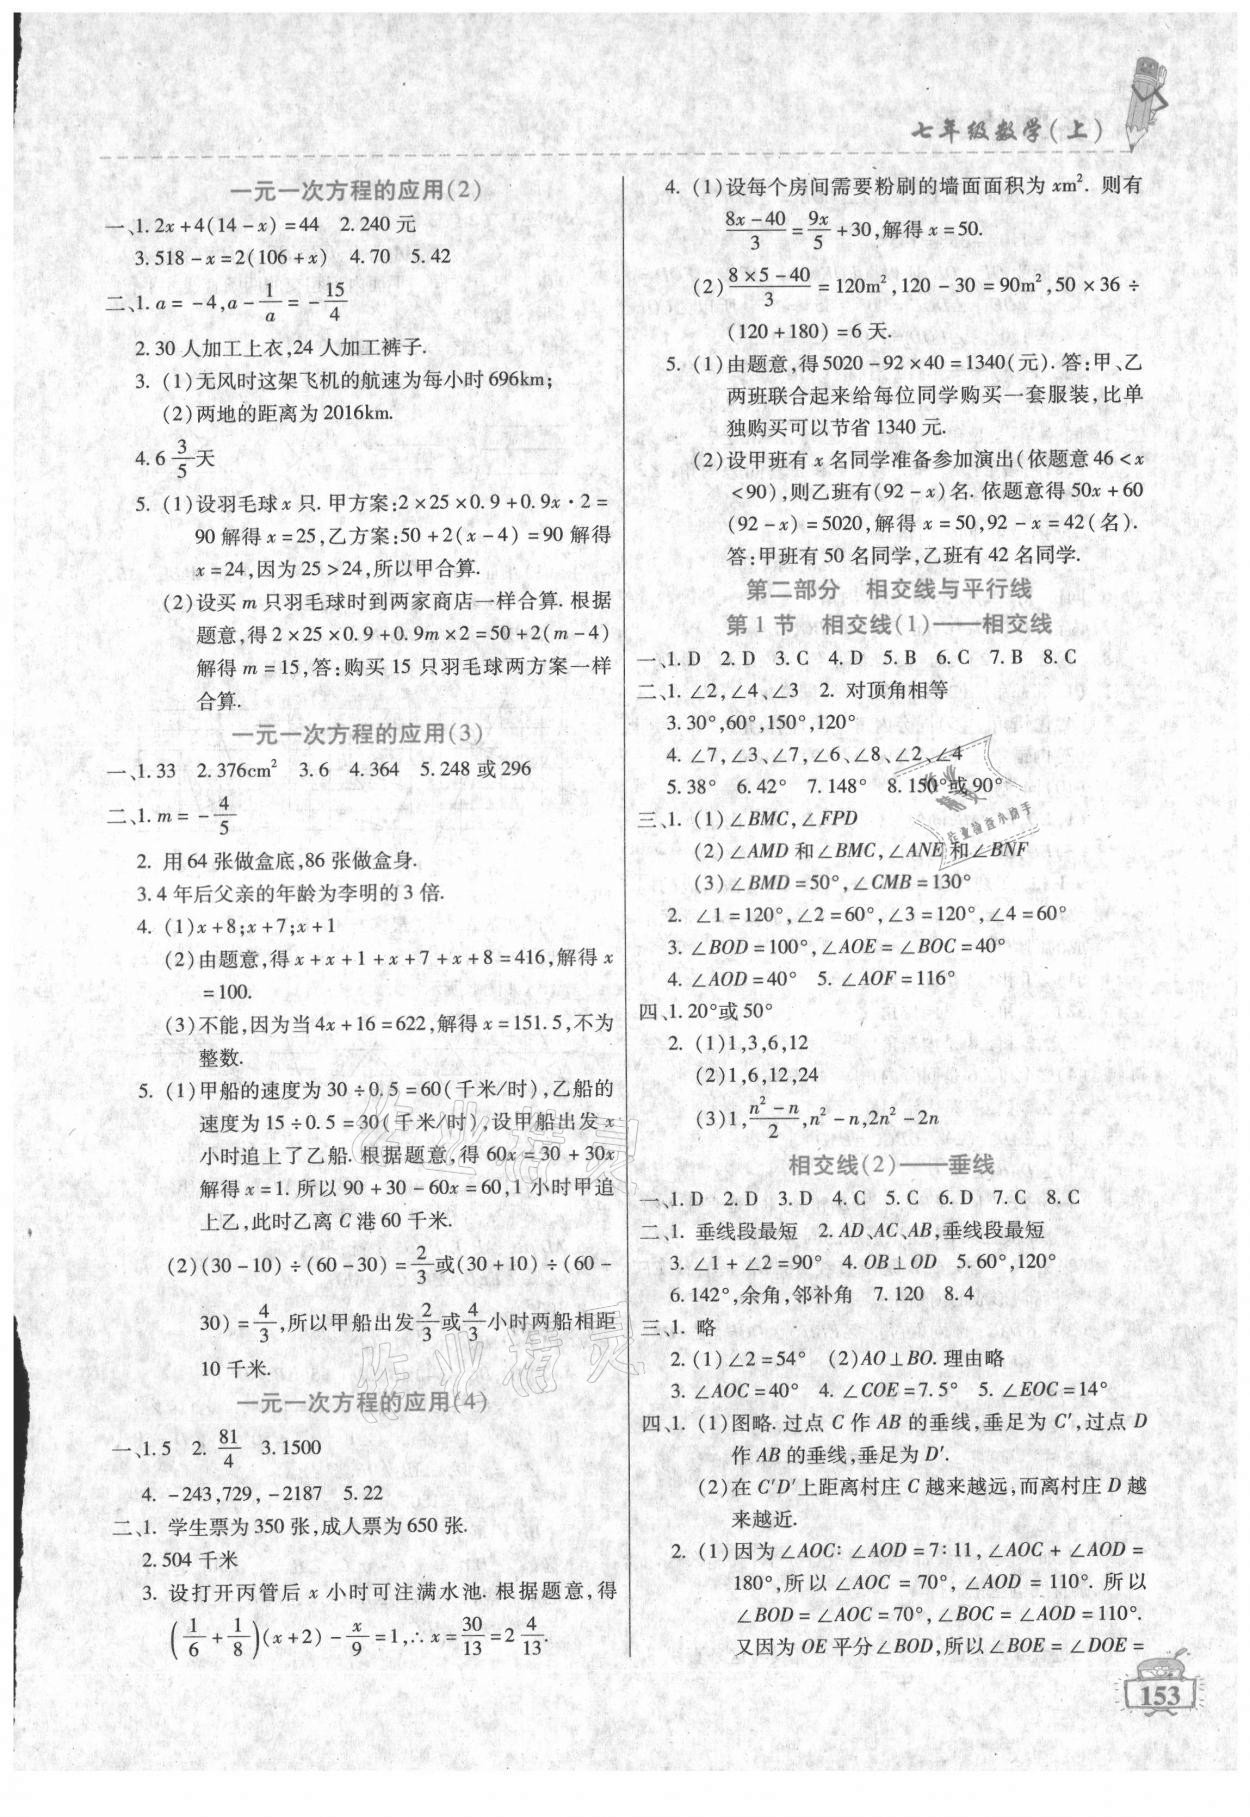 七年级数学(上)
一元一次方程的应用(2)
一、1. 2x+4(14-x)=44 2. 240元
3. 518-x=2(106+x) 4. 70 5. 42
二、1. a=-4,a-1/a=-15/4
2. 30人加工上衣,24人加工裤子.
3. (1)无风时这架飞机的航速为每小时696km;
(2)两地的距离为2016km.
4. 6 3/5天
5. (1)设羽毛球x只. 甲方案:2×25×0.9+0.9x·2=
90解得x=25,乙方案:50+2(x-4)=90解得
x=24,因为25>24,所以甲合算.
(2)设买m只羽毛球时到两家商店一样合算. 根据
题意,得2×25×0.9+0.9m×2=50+2(m-4)
解得m=15,答:购买15只羽毛球两方案一样
合算.
一元一次方程的应用(3)
一、1. 33 2. 376cm² 3. 6 4. 364 5. 248或296
二、1. m=-4/5
2. 用64张做盒底,86张做盒身.
3. 4年后父亲的年龄为李明的3倍.
4. (1)x+8;x+7;x+1
(2)由题意,得x+x+1+x+7+x+8=416,解得x
=100.
(3)不能,因为当4x+16=622,解得x=151.5,不为
整数.
5. (1)甲船的速度为30÷0.5=60(千米/时),乙船的
速度为15÷0.5=30(千米/时),设甲船出发x
小时追上了乙船. 根据题意,得60x=30+30x
解得x=1. 所以90+30-60x=60,1小时甲追
上乙,此时乙离C港60千米.
(2)(30-10)÷(60-30)=2/3或(30+10)÷(60-
30)=4/3,所以甲船出发2/3或4/3小时两船相距
10千米.
一元一次方程的应用(4)
一、1. 5 2. 81/4 3. 1500
4. -243,729,-2187 5. 22
二、1. 学生票为350张,成人票为650张.
2. 504千米
3. 设打开丙管后x小时可注满水池. 根据题意,得
(1/6+1/8)(x+2)-x/9=1,∴x=30/13=2 4/13.
4. (1)设每个房间需要粉刷的墙面面积为xm². 则有
(8x-40)/3=9x/5+30,解得x=50.
(2)(8×5-40)/3=120m²,120-30=90m²,50×36÷
(120+180)=6天.
5. (1)由题意,得5020-92×40=1340(元). 答:甲、乙
两班联合起来给每位同学购买一套服装,比单
独购买可以节省1340元.
(2)设甲班有x名同学准备参加演出(依题意46<x
<90),则乙班有(92-x)名. 依题意得50x+60
(92-x)=5020,解得x=50,92-x=42(名).
答:甲班有50名同学,乙班有42名同学.
第二部分 相交线与平行线
第1节 相交线(1)——相交线
一、1. D 2. D 3. C 4. D 5. B 6. C 7. B 8. C
二、1. ∠2,∠4、∠3 2. 对顶角相等
3. 30°,60°,150°,120°
4. ∠7、∠3、∠7、∠6、∠8、∠2、∠4
5. 38° 6. 42° 7. 148° 8. 150°或90°
三、1. (1)∠BMC,∠FPD
(2)∠AMD和∠BMC,∠ANE和∠BNF
(3)∠BMD=50°,∠CMB=130°
2. ∠1=120°,∠2=60°,∠3=120°,∠4=60°
3. ∠BOD=100°,∠AOE=∠BOC=40°
4. ∠AOD=40° 5. ∠AOF=116°
四、1. 20°或50°
2. (1)1,3,6,12
(2)1,6,12,24
(3)1,(n²-n)/2,n²-n,2n²-2n
相交线(2)——垂线
一、1. D 2. D 3. D 4. C 5. C 6. D 7. C 8. C
二、1. 垂线段最短 2. AD、AC、AB,垂线段最短
3. ∠1+∠2=90° 4. OB⊥OD 5. 60°,120°
6. 142°,余角,邻补角 7. 120 8. 4
三、1. 略
2. (1)∠2=54° (2)AO⊥BO. 理由略
3. ∠AOC=40° 4. ∠COE=7.5° 5. ∠EOC=14°
四、1. (1)图略. 过点C作AB的垂线,垂足为C′,过点D
作AB的垂线,垂足为D′.
(2)在C′D′上距离村庄C越来越远,而离村庄D越
来越近.
2. (1)因为∠AOC:∠AOD=7:11,∠AOC+∠AOD=
180°,所以∠AOC=70°,∠AOD=110°. 所以
∠BOD=∠AOC=70°,∠BOC=∠AOD=110°.
又因为OE平分∠BOD,所以∠BOE=∠DOE=
153
作业精灵
作业精灵
作业精灵
作业检查小助手